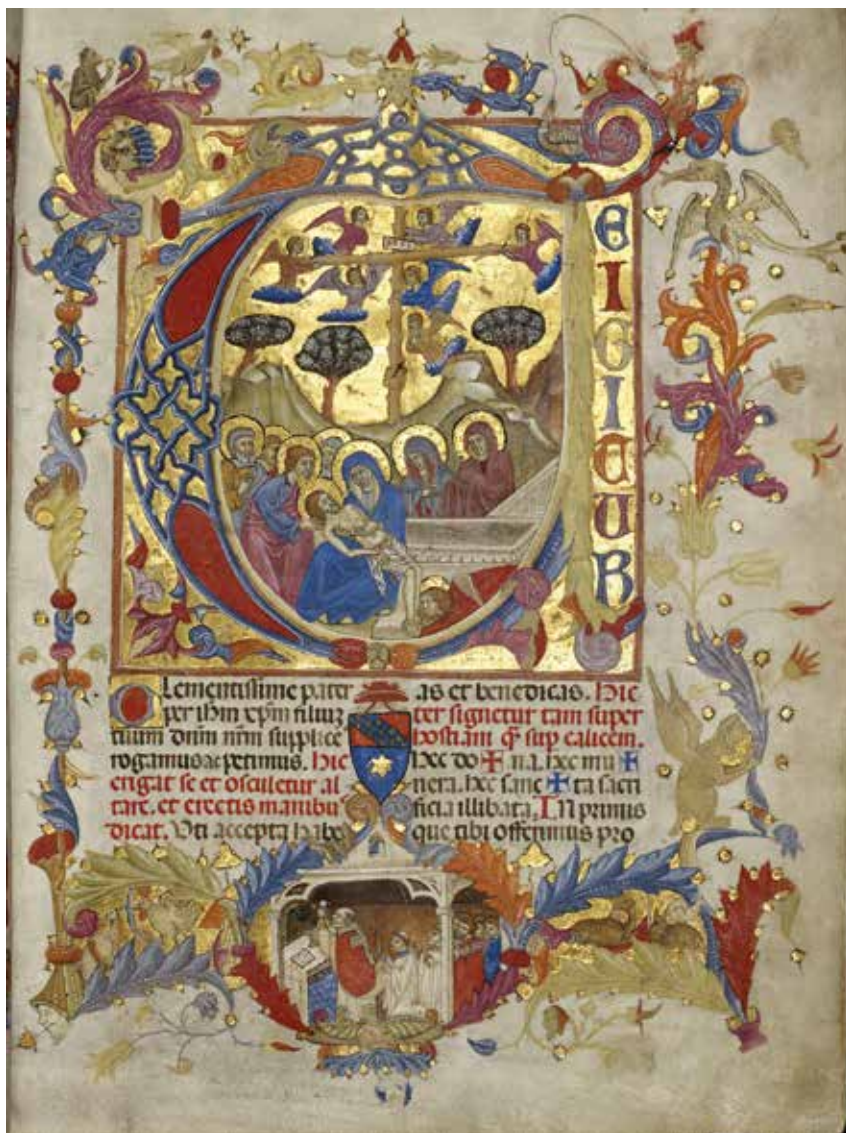 TEIGITUR
Clementissime pater
per ihm xpm filiuz
tuum dnm nrm supplice
rogamus ac petimus. Hic
erigat se et osculetur al
tare. et erectis manibu
dicat. Uti accepta habe
as et benedicas. Hic
ter signetur tam super
hostiam q̄ sup calicem.
hec do ✠ na. hec mu ✠
nera. hec sanc ✠ ta sacri
ficia illibata. IN primus
que tibi offerimus pro